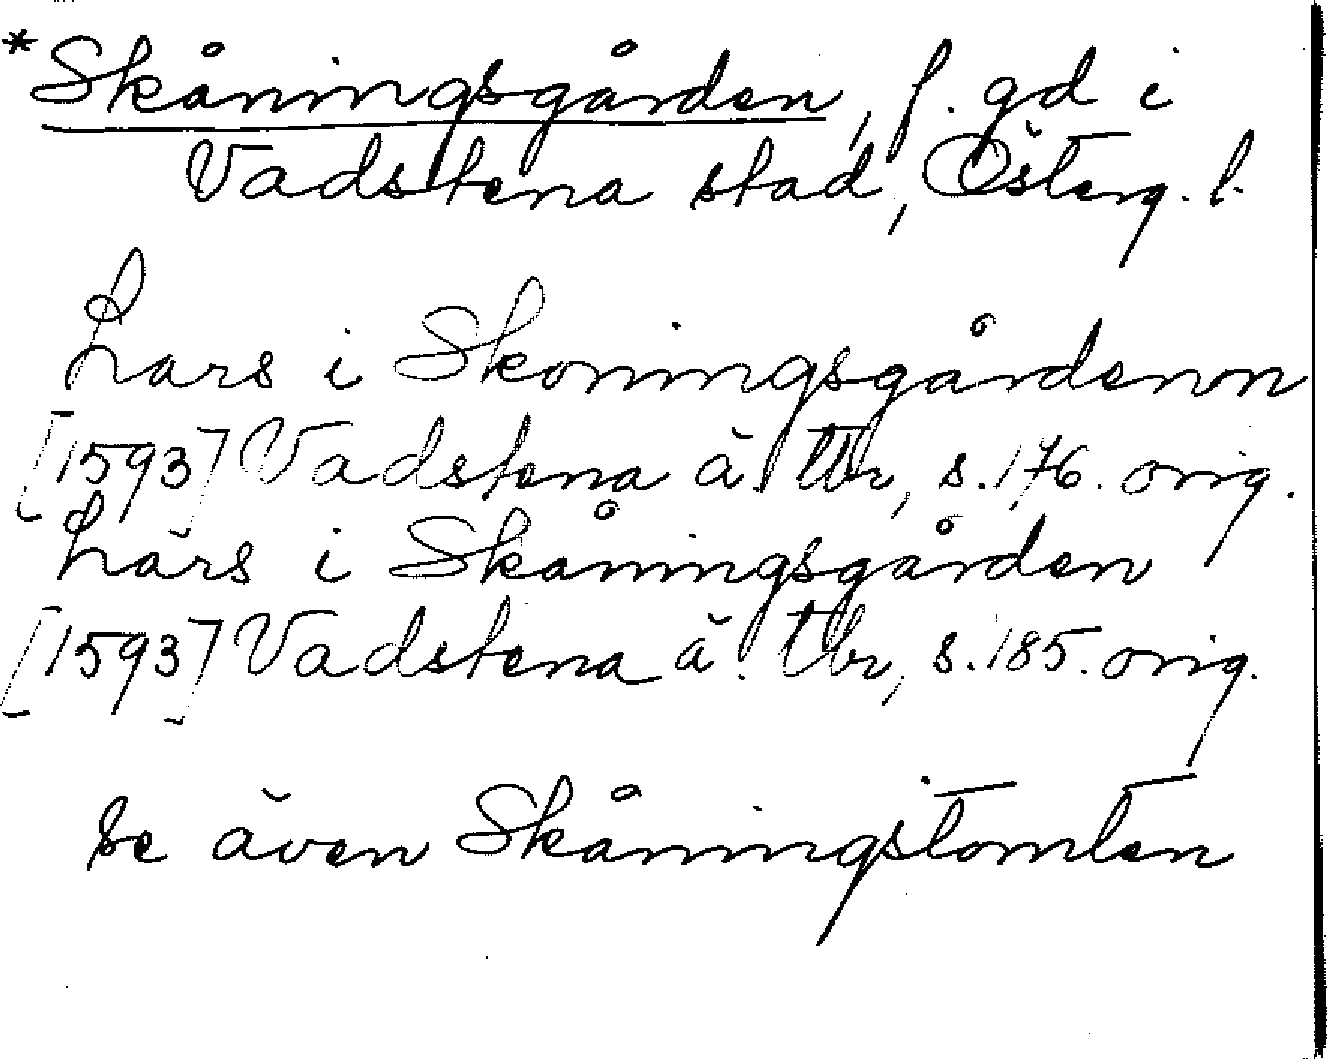 *Skåningsgården, f. gd i
Vadstena stad, Österg. l.
Lars i Skoningsgårdenn
[1593] Vadstena ä. tbr, s. 176. orig.
Lars i Skåningsgården
[1593] Vadstena ä. tbr, s. 185. orig.
Se även Skåningstomten